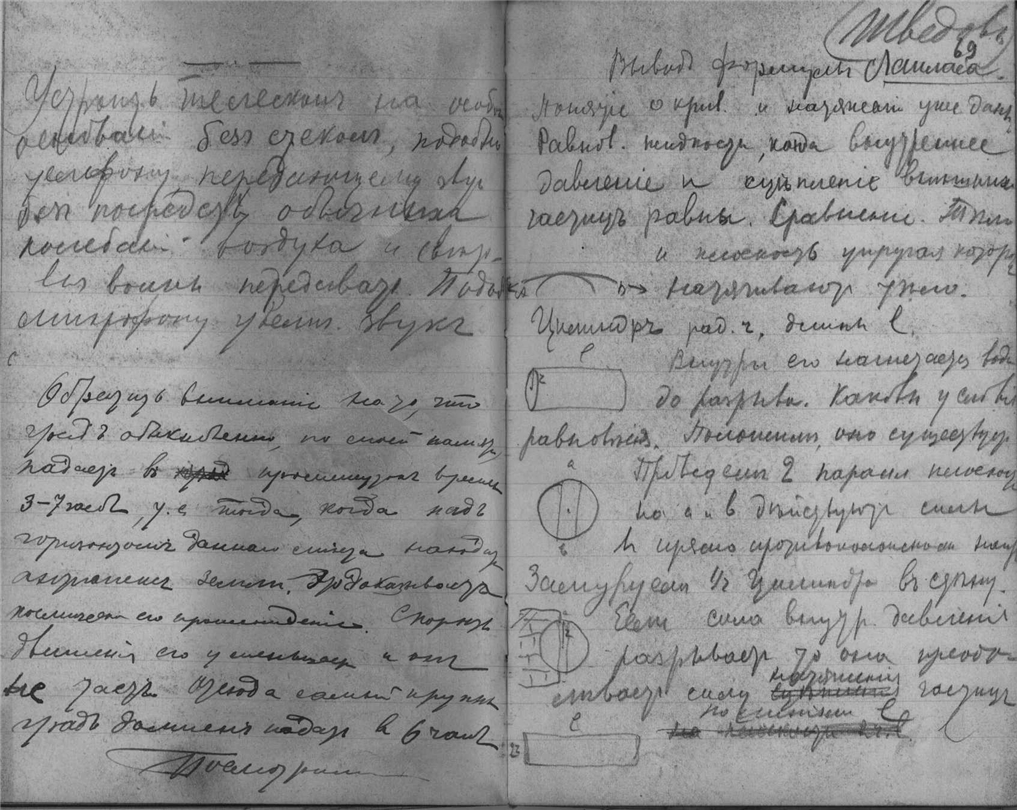 Устроить телескопъ на особ
основаніи безъ стеколъ, подобн
телефону передающему звук
безъ посредств. обычныхъ
колебаній воздуха и
волны передавать. Подобн
микрофону увелич. звукъ
Обратить вниманіе на то, что
градъ обыкновенно, по моей
падаетъ въ промежутокъ времени
3-7 часовъ, т.е тогда, когда надъ
горизонтомъ даннаго мѣста находи
Земли. Это доказываетъ
космическое его происхожденіе. Скорость
движенія его уменьшает и от
часть Отсюда самый крупн
градъ долженъ падать въ 6 часовъ
Посмотримъ
Шведовъ
69
Выводъ формулы Лапласа.
Понятіе о крив. и натяженіи уже даны
Равнов. жидкости, когда внутреннее
давленіе и сцѣпленіе внѣшних
частицъ равны. Сравненіе. Тѣло
и плоскость упругая котор
натягиваютъ тѣло.
Цилиндръ рад. r, длины l.
l
Внутрь его нагнетается вода
r
до разрыва. Каковы услові
равновѣсія. Положимъ, оно существуетъ
Проведемъ 2 паралл плоскости
а
на а и в дѣйствуютъ силы
въ прямо противоположномъ напр
в
½ цилиндра въ стѣну.
Если сила внутр. давленія
r
разрываетъ то она преодо-
натяженія
лѣваетъ силу частицъ
по линіямъ l
l
2r